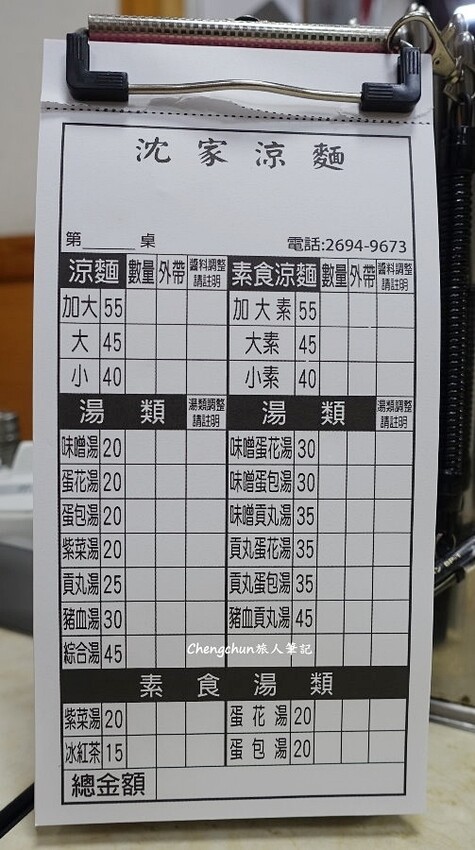 沈家涼麵
第______桌 電話:2694-9673
涼麵 數量 外帶 醬料調整請註明 素食涼麵 數量 外帶 醬料調整請註明
加大 55 加大素 55
大 45 大素 45
小 40 小素 40
湯類 湯類調整請註明 湯類 湯類調整請註明
味噌湯 20 味噌蛋花湯 30
蛋花湯 20 味噌蛋包湯 30
蛋包湯 20 味噌貢丸湯 35
紫菜湯 20 貢丸蛋花湯 35
貢丸湯 25 貢丸蛋包湯 35
豬血湯 30 豬血貢丸湯 45
綜合湯 45
Chengchun旅人筆記
素食湯類
紫菜湯 20 蛋花湯 20
冰紅茶 15 蛋包湯 20
總金額